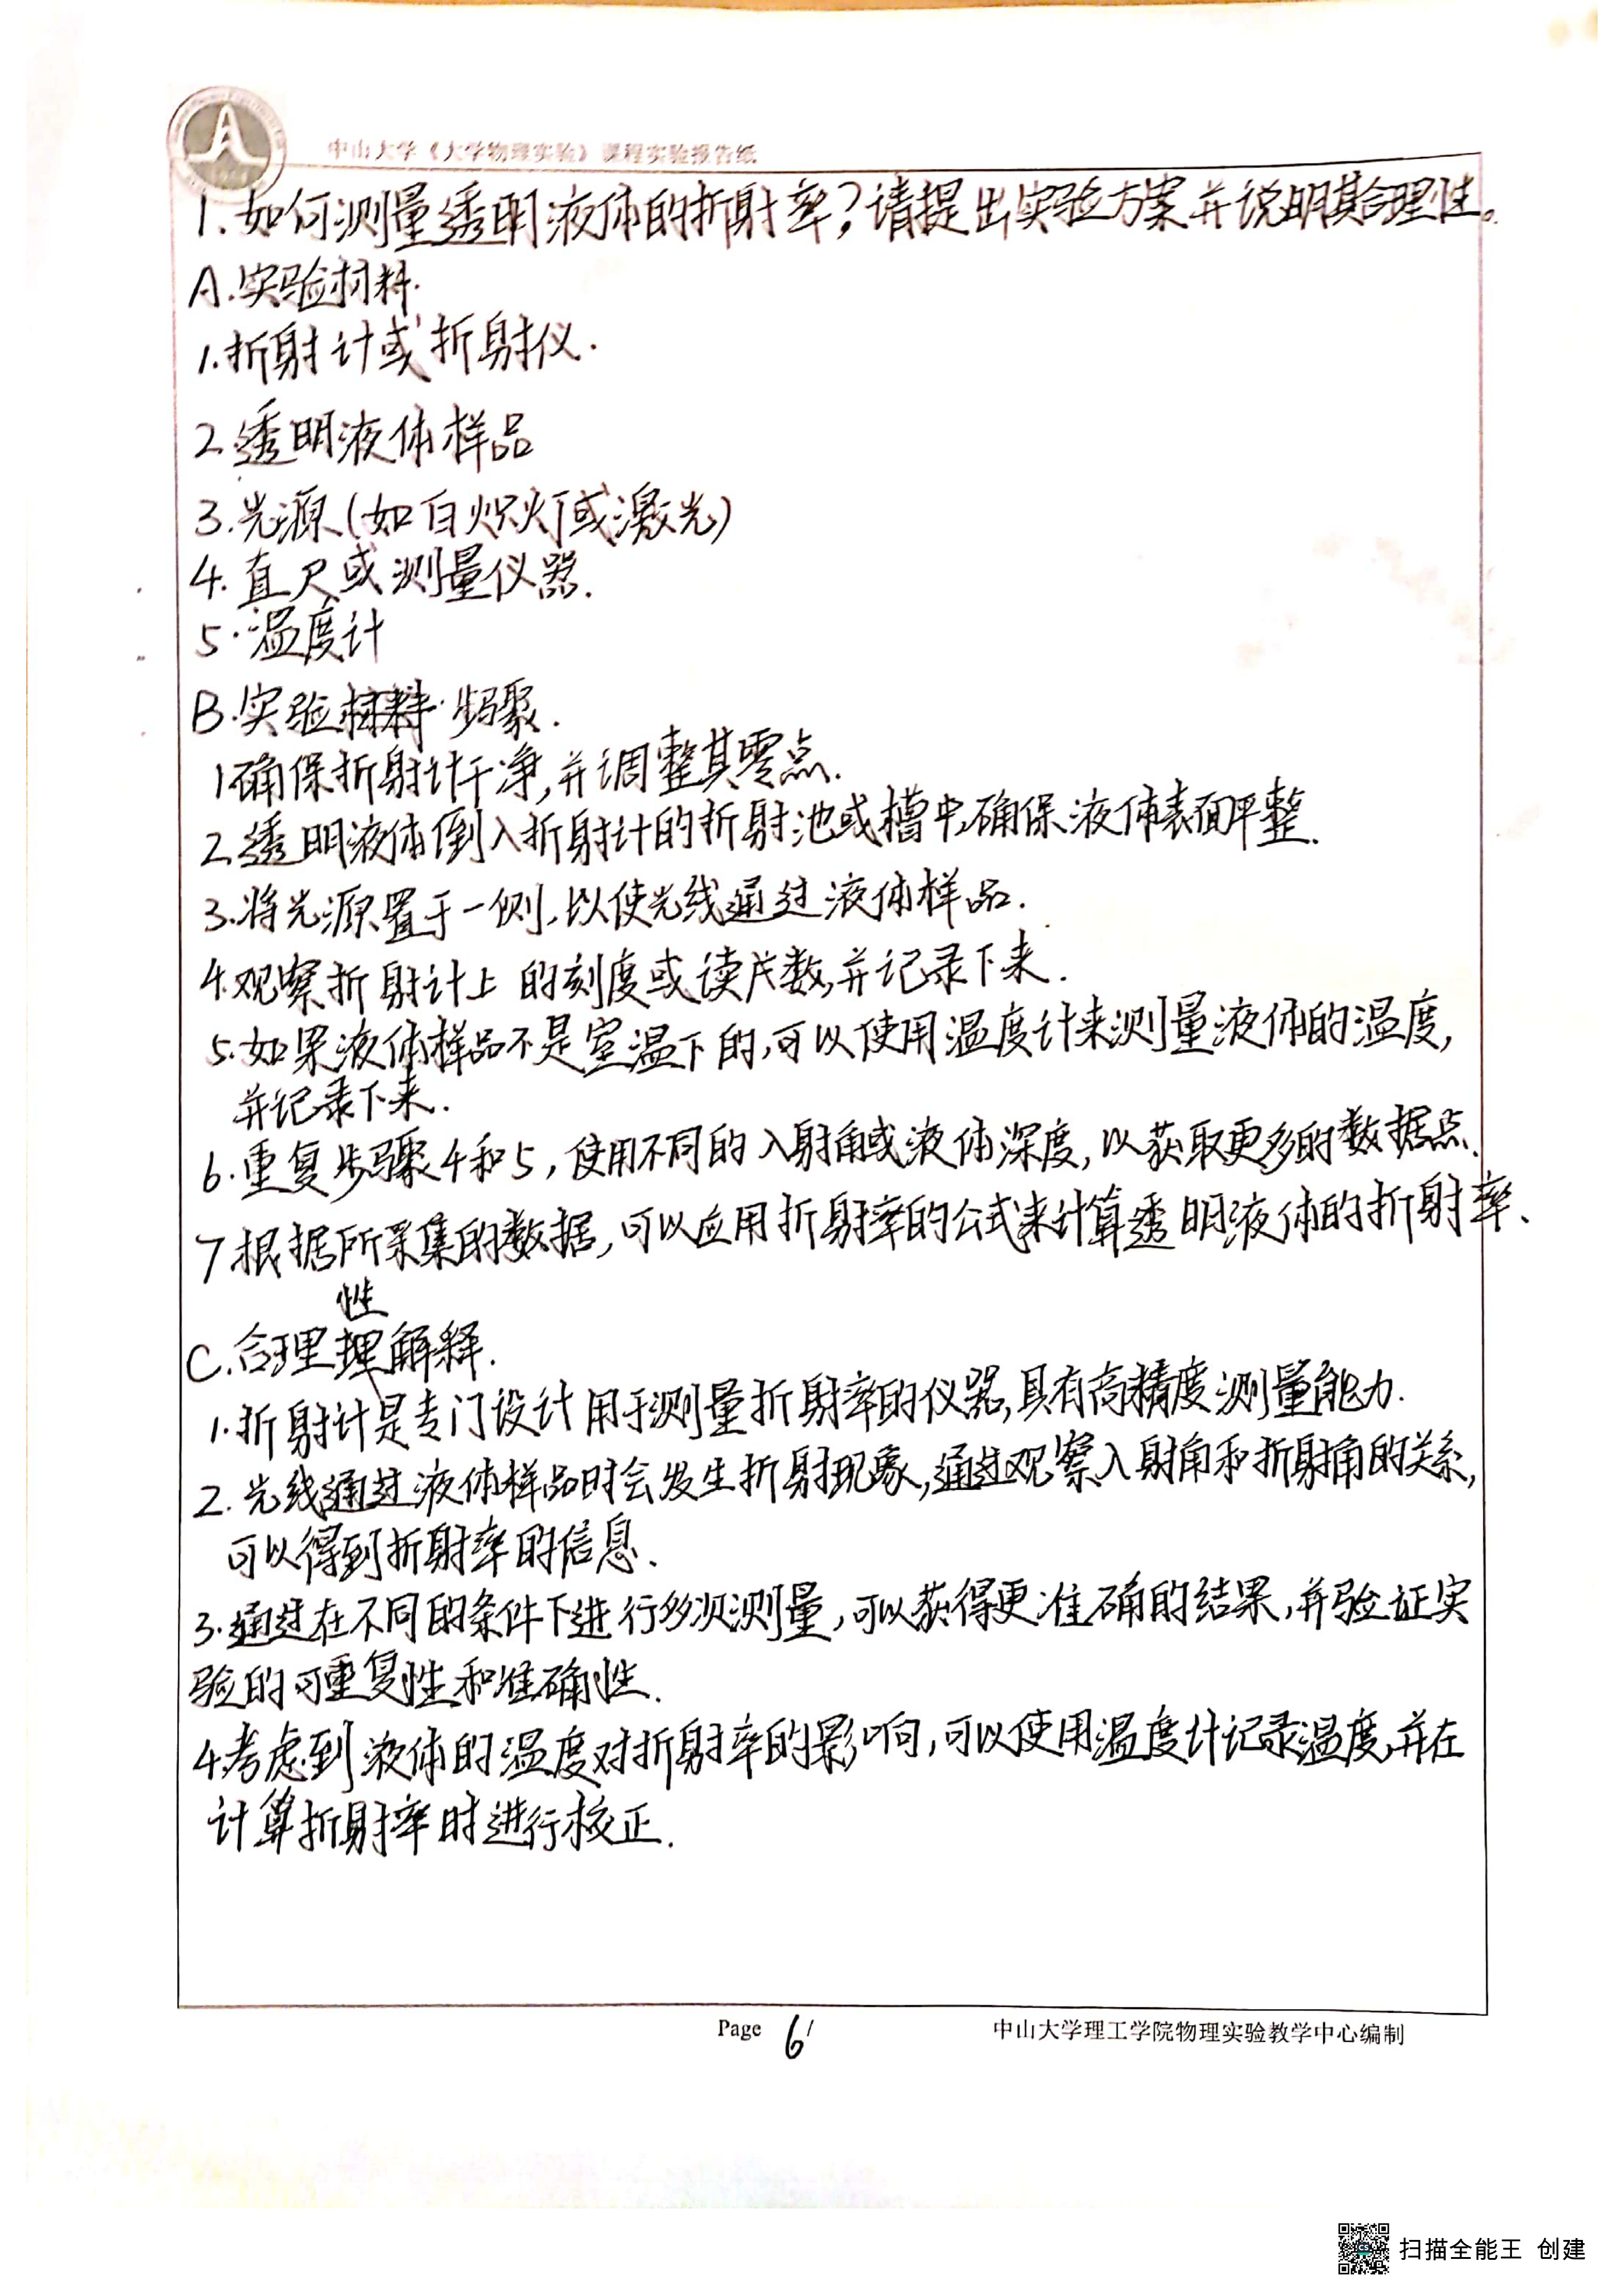 中山大学《大学物理实验》课程实验报告纸
1.如何测量透明液体的折射率?请提出实验方案并说明其合理性。
A.实验材料.
1.折射计或折射仪.
2.透明液体样品
3.光源(如白炽灯或激光)
4.直尺或测量仪器.
5.温度计
B.实验材料.步骤.
1确保折射计干净,并调整其零点.
2.透明液体倒入折射计的折射池或槽中,确保液体表面平整.
3.将光源置于一侧,以使光线通过液体样品.
4.观察折射计上的刻度或读片数,并记录下来.
5.如果液体样品不是室温下的,可以使用温度计来测量液体的温度,
并记录下来.
6.重复步骤4和5,使用不同的入射角或液体深度,以获取更多的数据点.
7.根据所采集的数据,可以应用折射率的公式来计算透明液体的折射率.
性
C.合理理解释.
1.折射计是专门设计用于测量折射率的仪器,具有高精度测量能力.
2.光线通过液体样品时会发生折射现象,通过观察入射角和折射角的关系,
可以得到折射率的信息.
3.通过在不同的条件下进行多次测量,可以获得更准确的结果,并验证实
验的可重复性和准确性.
4.考虑到液体的温度对折射率的影响,可以使用温度计记录温度,并在
计算折射率时进行校正.
Page 6/ 中山大学理工学院物理实验教学中心编制
扫描全能王 创建